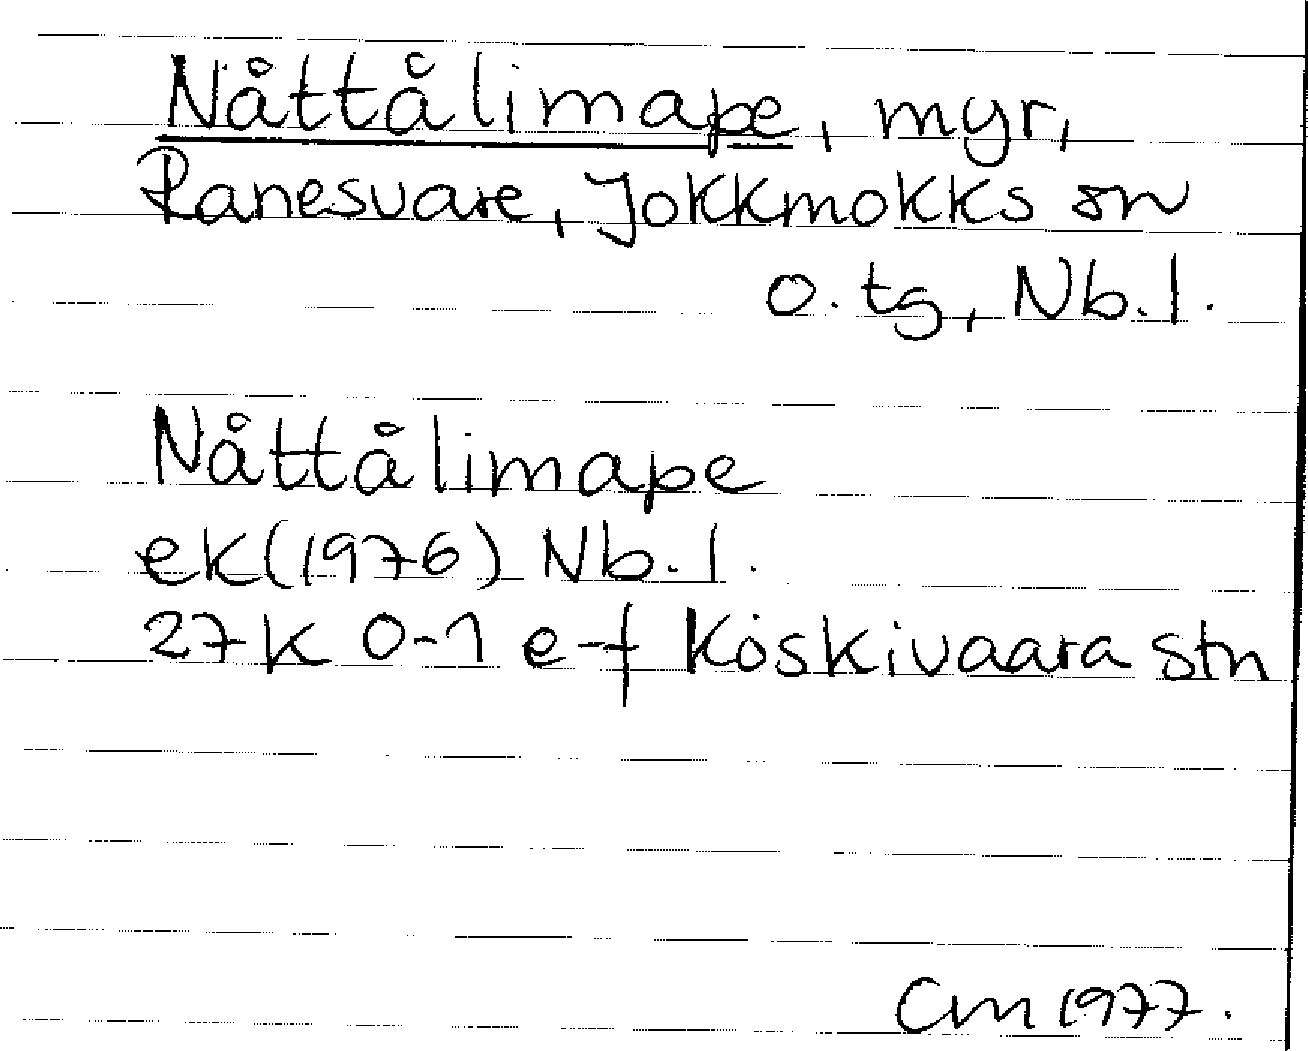 Nåttålimape, myr,
Ranesvare, Jokkmokks sn
o. tg, Nb.l.
Nåttålimape
ek(1976) Nb.l.
27K 0-1 e-f Koskivaara stn
CM 1977.